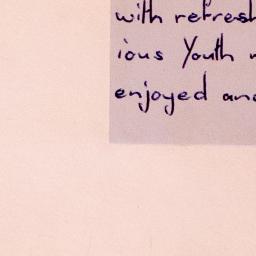 with refresh
ious Youth
enjoyed and